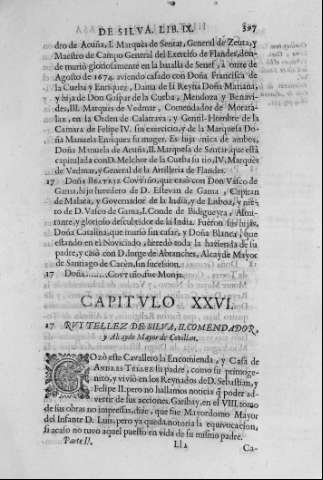 DE SILVA. LIB. IX. 897
dro de Acuña, I. Marquès de Sentar, General de Zeuta, y
Maestro de Campo General del Exercito de Flandes, don-
de murió gloriosamente en la batalla de Senef, à onze de
Agosto de 1674. aviendo casado con Doña Francisca de
la Cueba y Enriquez, Dama de la Reyna Doña Mariana,
y hija de Don Gaspar de la Cueba, Mendoza y Benavi-
des, III. Marquès de Vedmar, Comendador de Morata-
laz, en la Orden de Calatrava, y Gentil-Hombre de la
Camara de Felipe IV. sin exercicio, y de la Marquesa Do-
ña Manuela Enriquez su muger. Es hija unica de ambos,
Doña Manuela de Acuña, II. Marquesa de Sentar, que està
capitulada con D. Melchor de la Cueba su tio, IV. Marquès
de Vedmar, General de la Artilleria de Flandes.
17 Doña Coutiño, que casò con Don Vasco de
Gama, hijo heredero de D. Estevan de Gama, Capitan
de Malaca, y Governador de la India, y de Lisboa, y nie-
to de D. Vasco de Gama, I. Conde de Bidigueyra, Almi-
rante, y glorioso descubridor de la India. Fueron sus hijas,
Doña Catalina, que murió sin casar, y Doña Blanca, que
estando en el Noviciado, heredò toda la hazienda de su
padre, y casò con D. Jorge de Abranches, Alcayde Mayor
de Santiago de Cacèn, sin sucession.
17 Doña ....... Coutiño, fue Monja.
CAPITVLO XXVI.
17 RVI TELLEZ DE SILVA, II. COMENDADOR,
y Alcayde Mayor de Covillan.
GOzò este Cavallero la Encomienda, y Casa de
Andres Tellez su padre, como su primoge-
nito, y vivió en los Reynados de D. Sebastian, y
Felipe II. pero no hallamos noticias q̃ poder ad-
vertir de sus acciones. Garibay, en el VIII. tomo
de sus obras no impressas, dize, que fue Mayordomo Mayor
del Infante D. Luis, pero ya queda notoria la equivocacion,
si acaso no tuvo aquel puesto en vida de su mismo padre.
Parte II. Ll2 Ca-